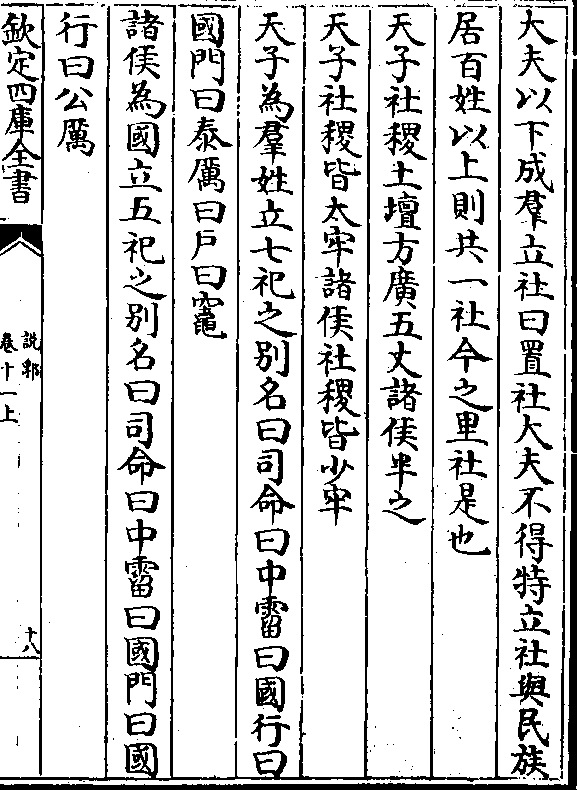 大夫以下成羣立社曰置社大夫不得特立社與民族
居百姓以上則共一社今之里社是也
天子社稷土壇方廣五丈諸侯半之
天子社稷皆太牢諸侯社稷皆少牢
天子為羣姓立七祀之别名曰司命曰中霤曰國行曰
國門曰泰厲曰户曰竈
諸侯為國立五祀之别名曰司命曰中霤曰國門曰國
行曰公厲
欽定四庫全書
說郛
卷十一上
十八